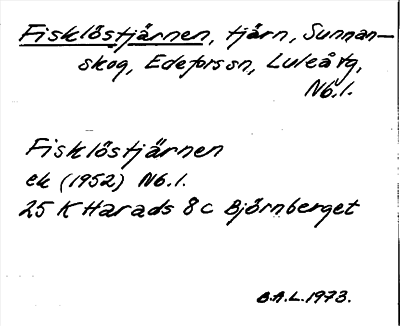 Fisklöstjärnen, tjärn, Sunnan-
skog, Edefors sn, Luleå tg,
Nb.l.
Fisklöstjärnen
ek (1952) Nb.l.
25 K Harads 8c Björnberget
B.A.L. 1973.